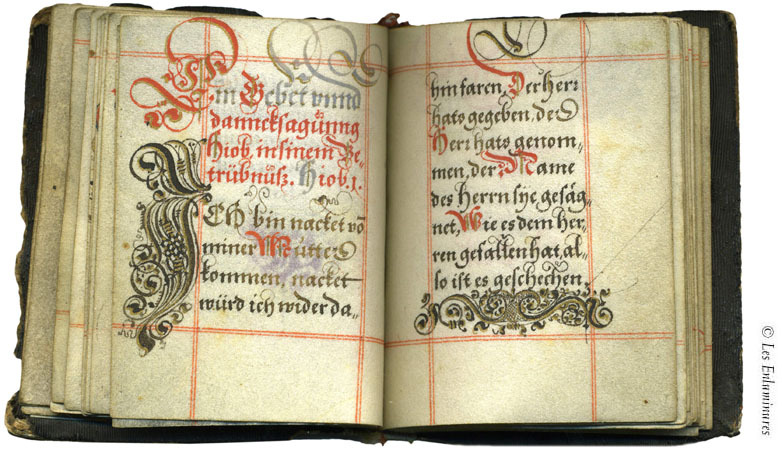 Ein Gebet vnnd
dancksagüng
Hiob, in sinem Be-
trübnüsz. Hiob. 1.
ICH bin nacket võ
miner Mütter
kommen, nacket
würd ich wider da-
hin faren, Der herr
hats gegeben, der
Herr hats genom-
men, der Name
des herrn sye gesäg-
net, Wie es dem her-
ren gefallen hat, al-
so ist es geschechen.
© Les Enluminures